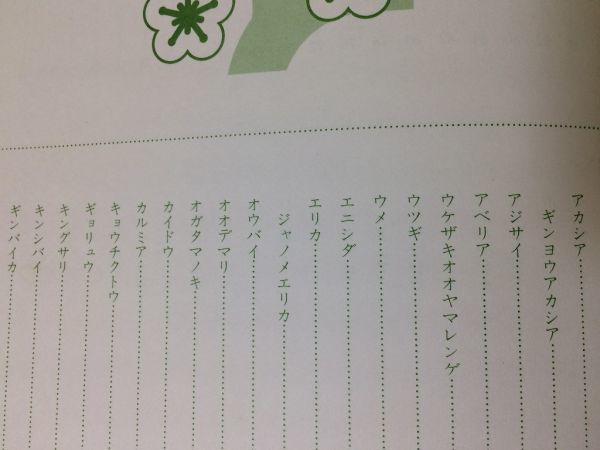 アカシア
ギンヨウアカシア
アジサイ
アベリア
ウケザキオオヤマレンゲ
ウツギ
ウメ
エニシダ
エリカ
ジャノメエリカ
オウバイ
オオデマリ
オガタマノキ
カイドウ
カルミア
キョウチクトウ
ギョリュウ
キングサリ
キンシバイ
ギンバイカ